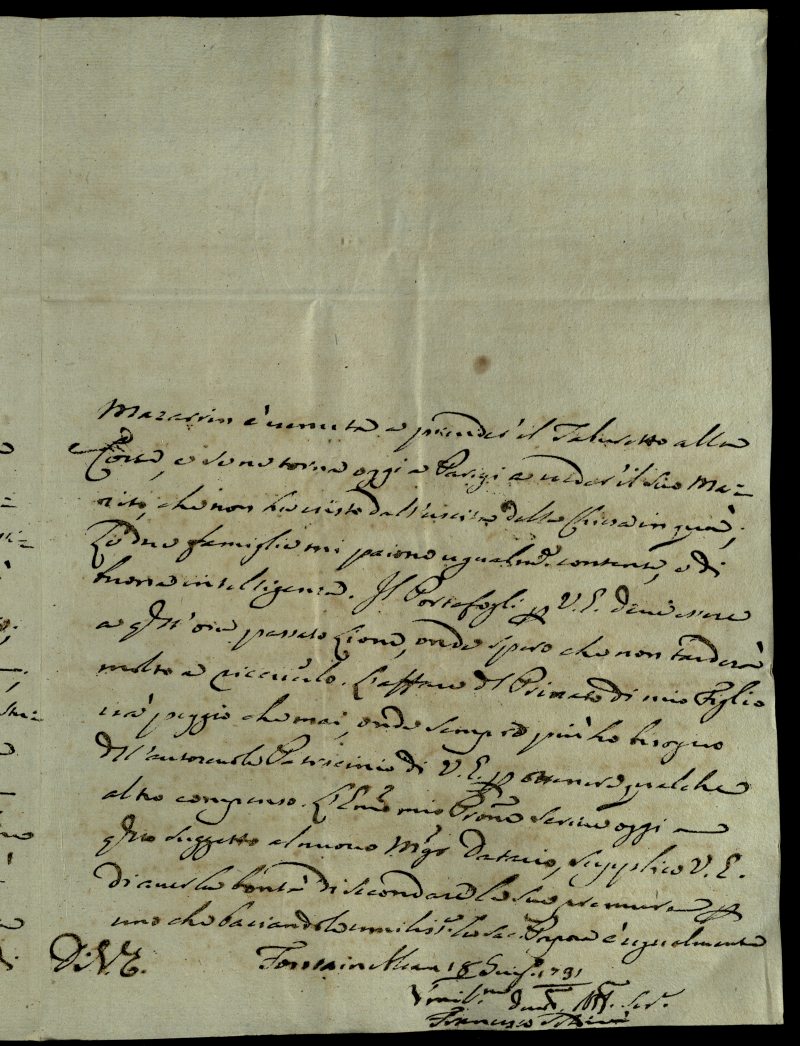 Mazarrin è venuta a prender il Taburetto alla
Corte, e se ne torna oggi a Parigi a veder il suo Ma=
rito, che non ha visto dall'uscita della Chiesa in quà;
Le due famiglie mi paiono ugualmᵉ. contente, e di
buona intelligenza. Il Portafogli p V. E. deve essere
a qst'ora passato Lione, onde spero che non tarderà
molto a riceverlo. L'affare del Priorato di mio Figlio
và peggio che mai, onde sempre più hò bisogno
dell'autorevole Patrocinio di V. E. p ottenere qualche
altro compenso. L'Emᵒ mio Prone scrive oggi
qsto suggetto al nuovo Mgr Datario, supplico V. E.
di aver la bontà di secondare le sue premure p
uno che baciandole umilisᵗᵉ la Sac. Porpora è ugualmente
Di V. E.
Fontainebleau 18
Umilᵐᵒ Devᵐᵒ Serᵉ.
Francesco